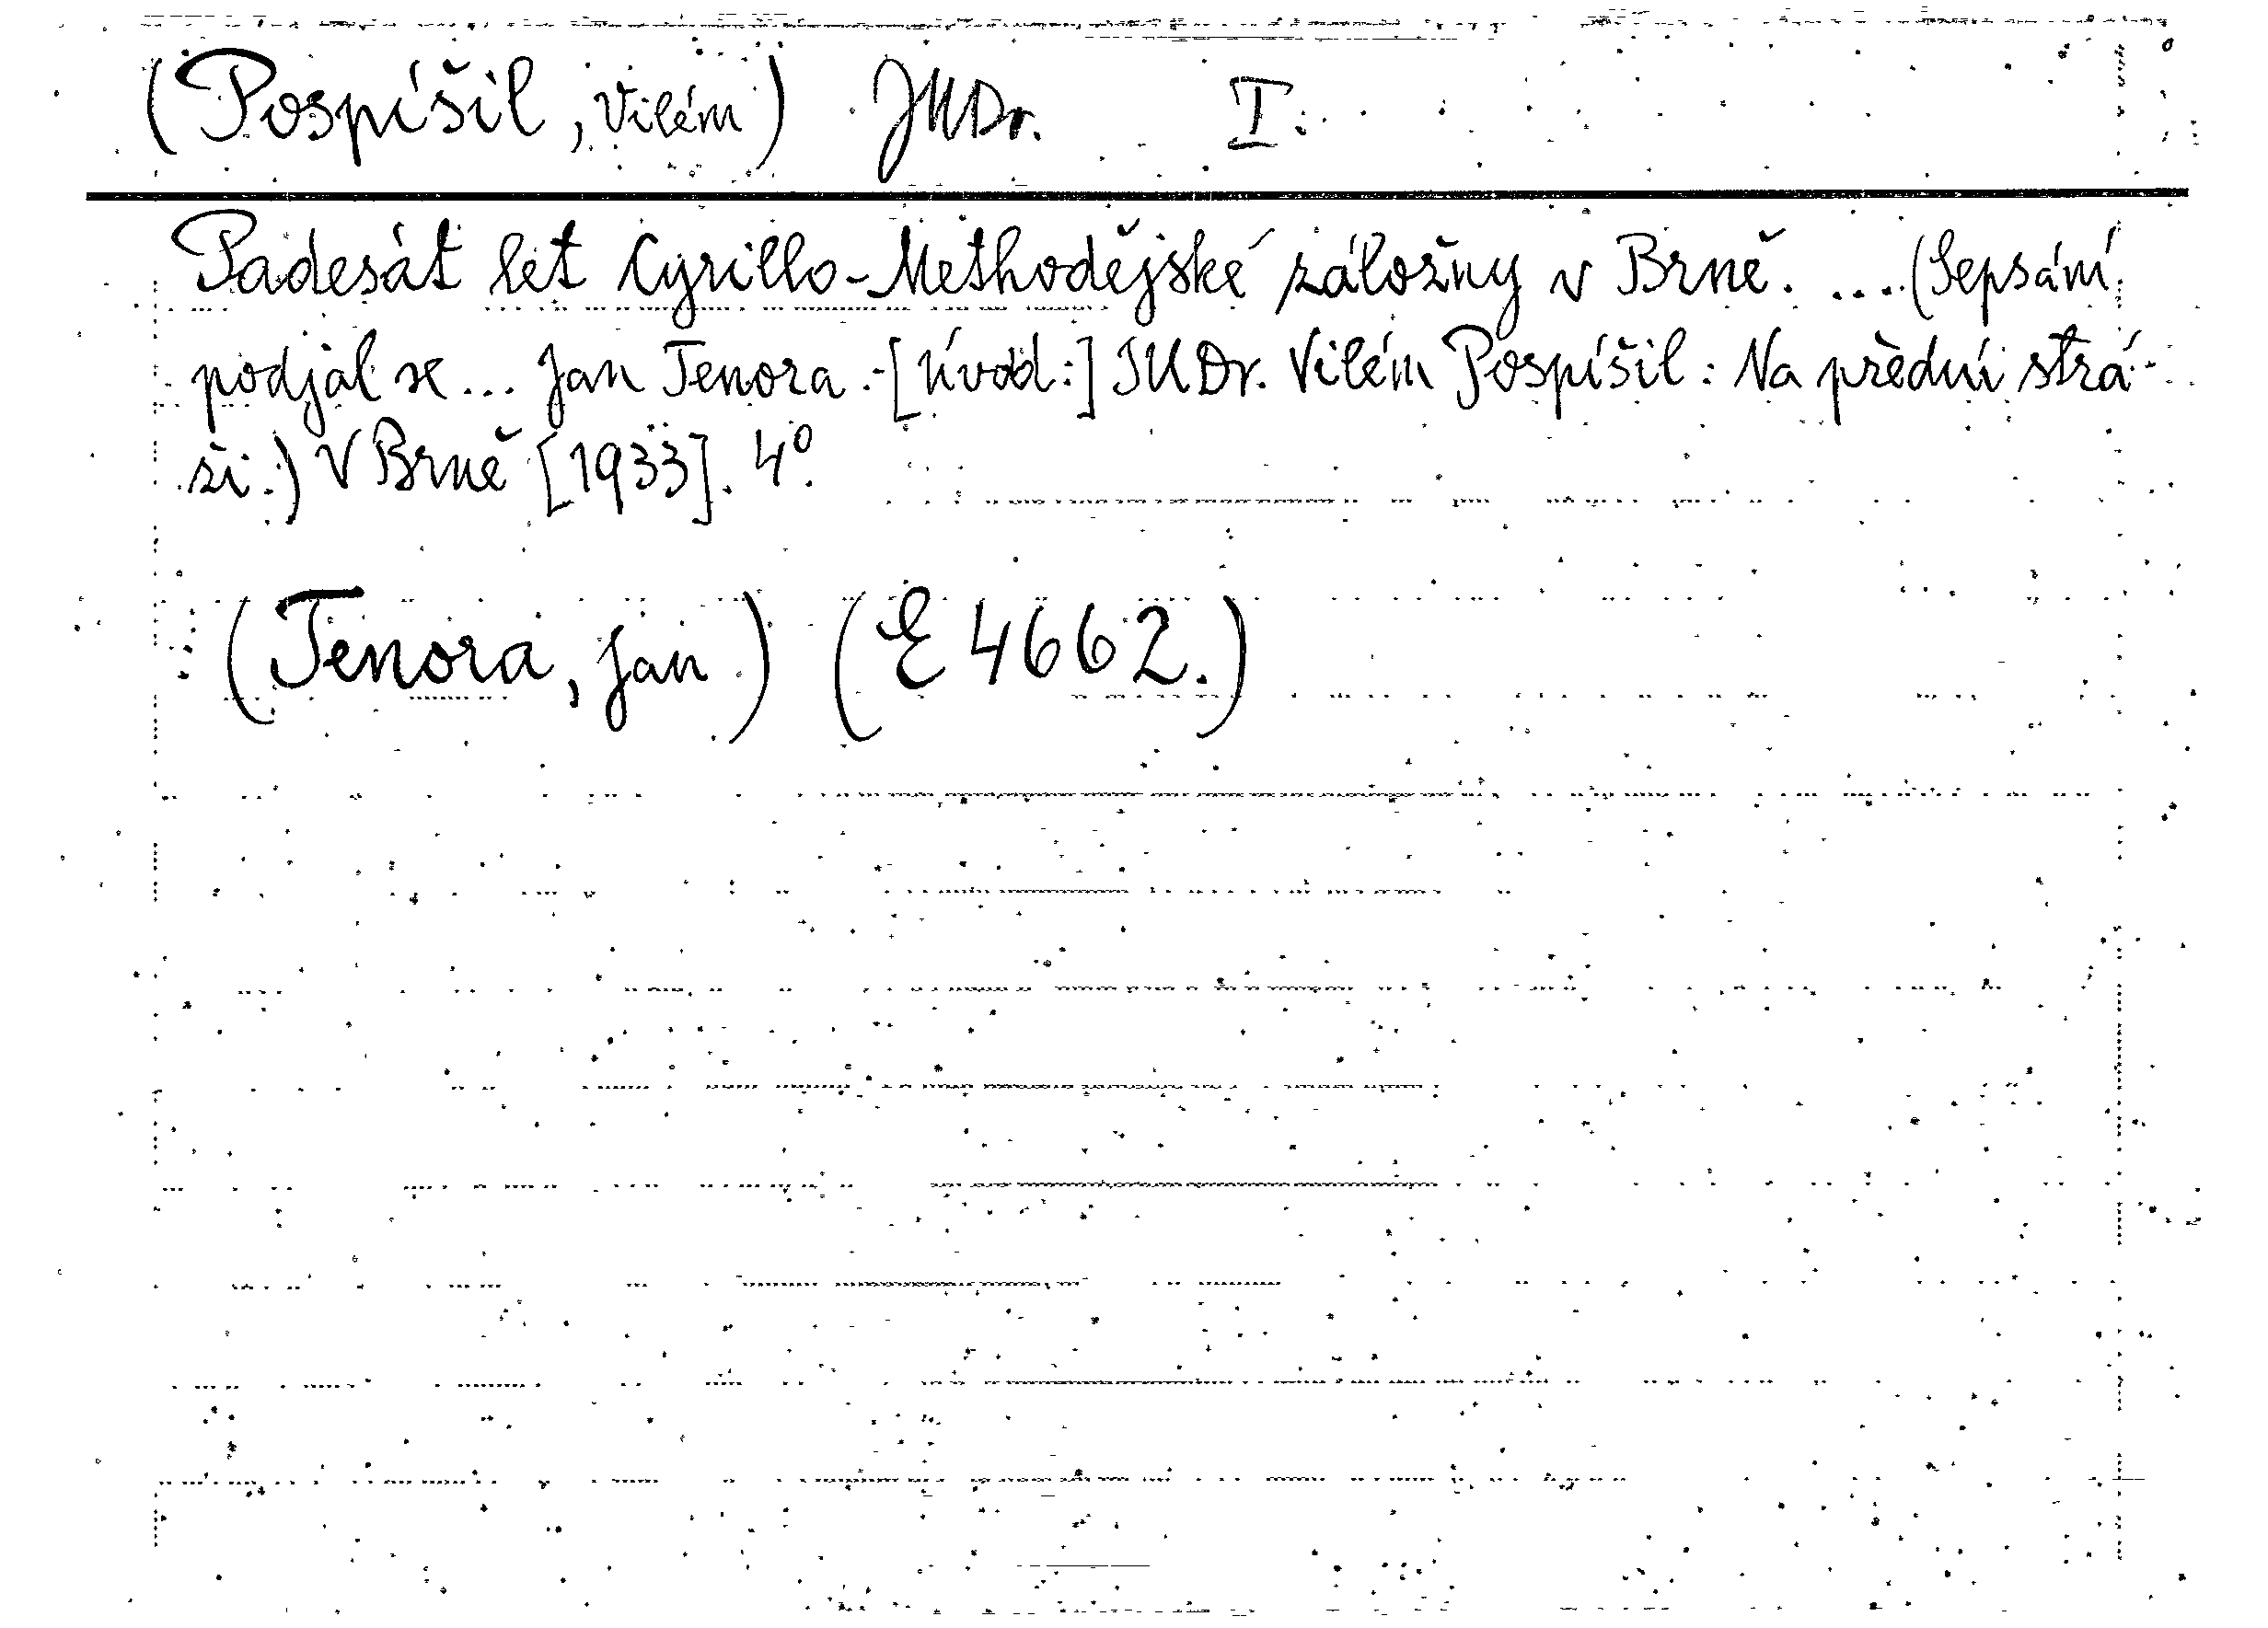 (Pospíšil, Vilém) JUDr. I.
Padesát let Cyrillo-Methodějské záložny v Brně. ... (Sepsání
podjal se ... Jan Tenora.-[Úvod:] JUDr. Vilém Pospíšil: Na přední strá-
ži.) V Brně [1933]. 4°.
(Tenora, Jan) (E 4662.)